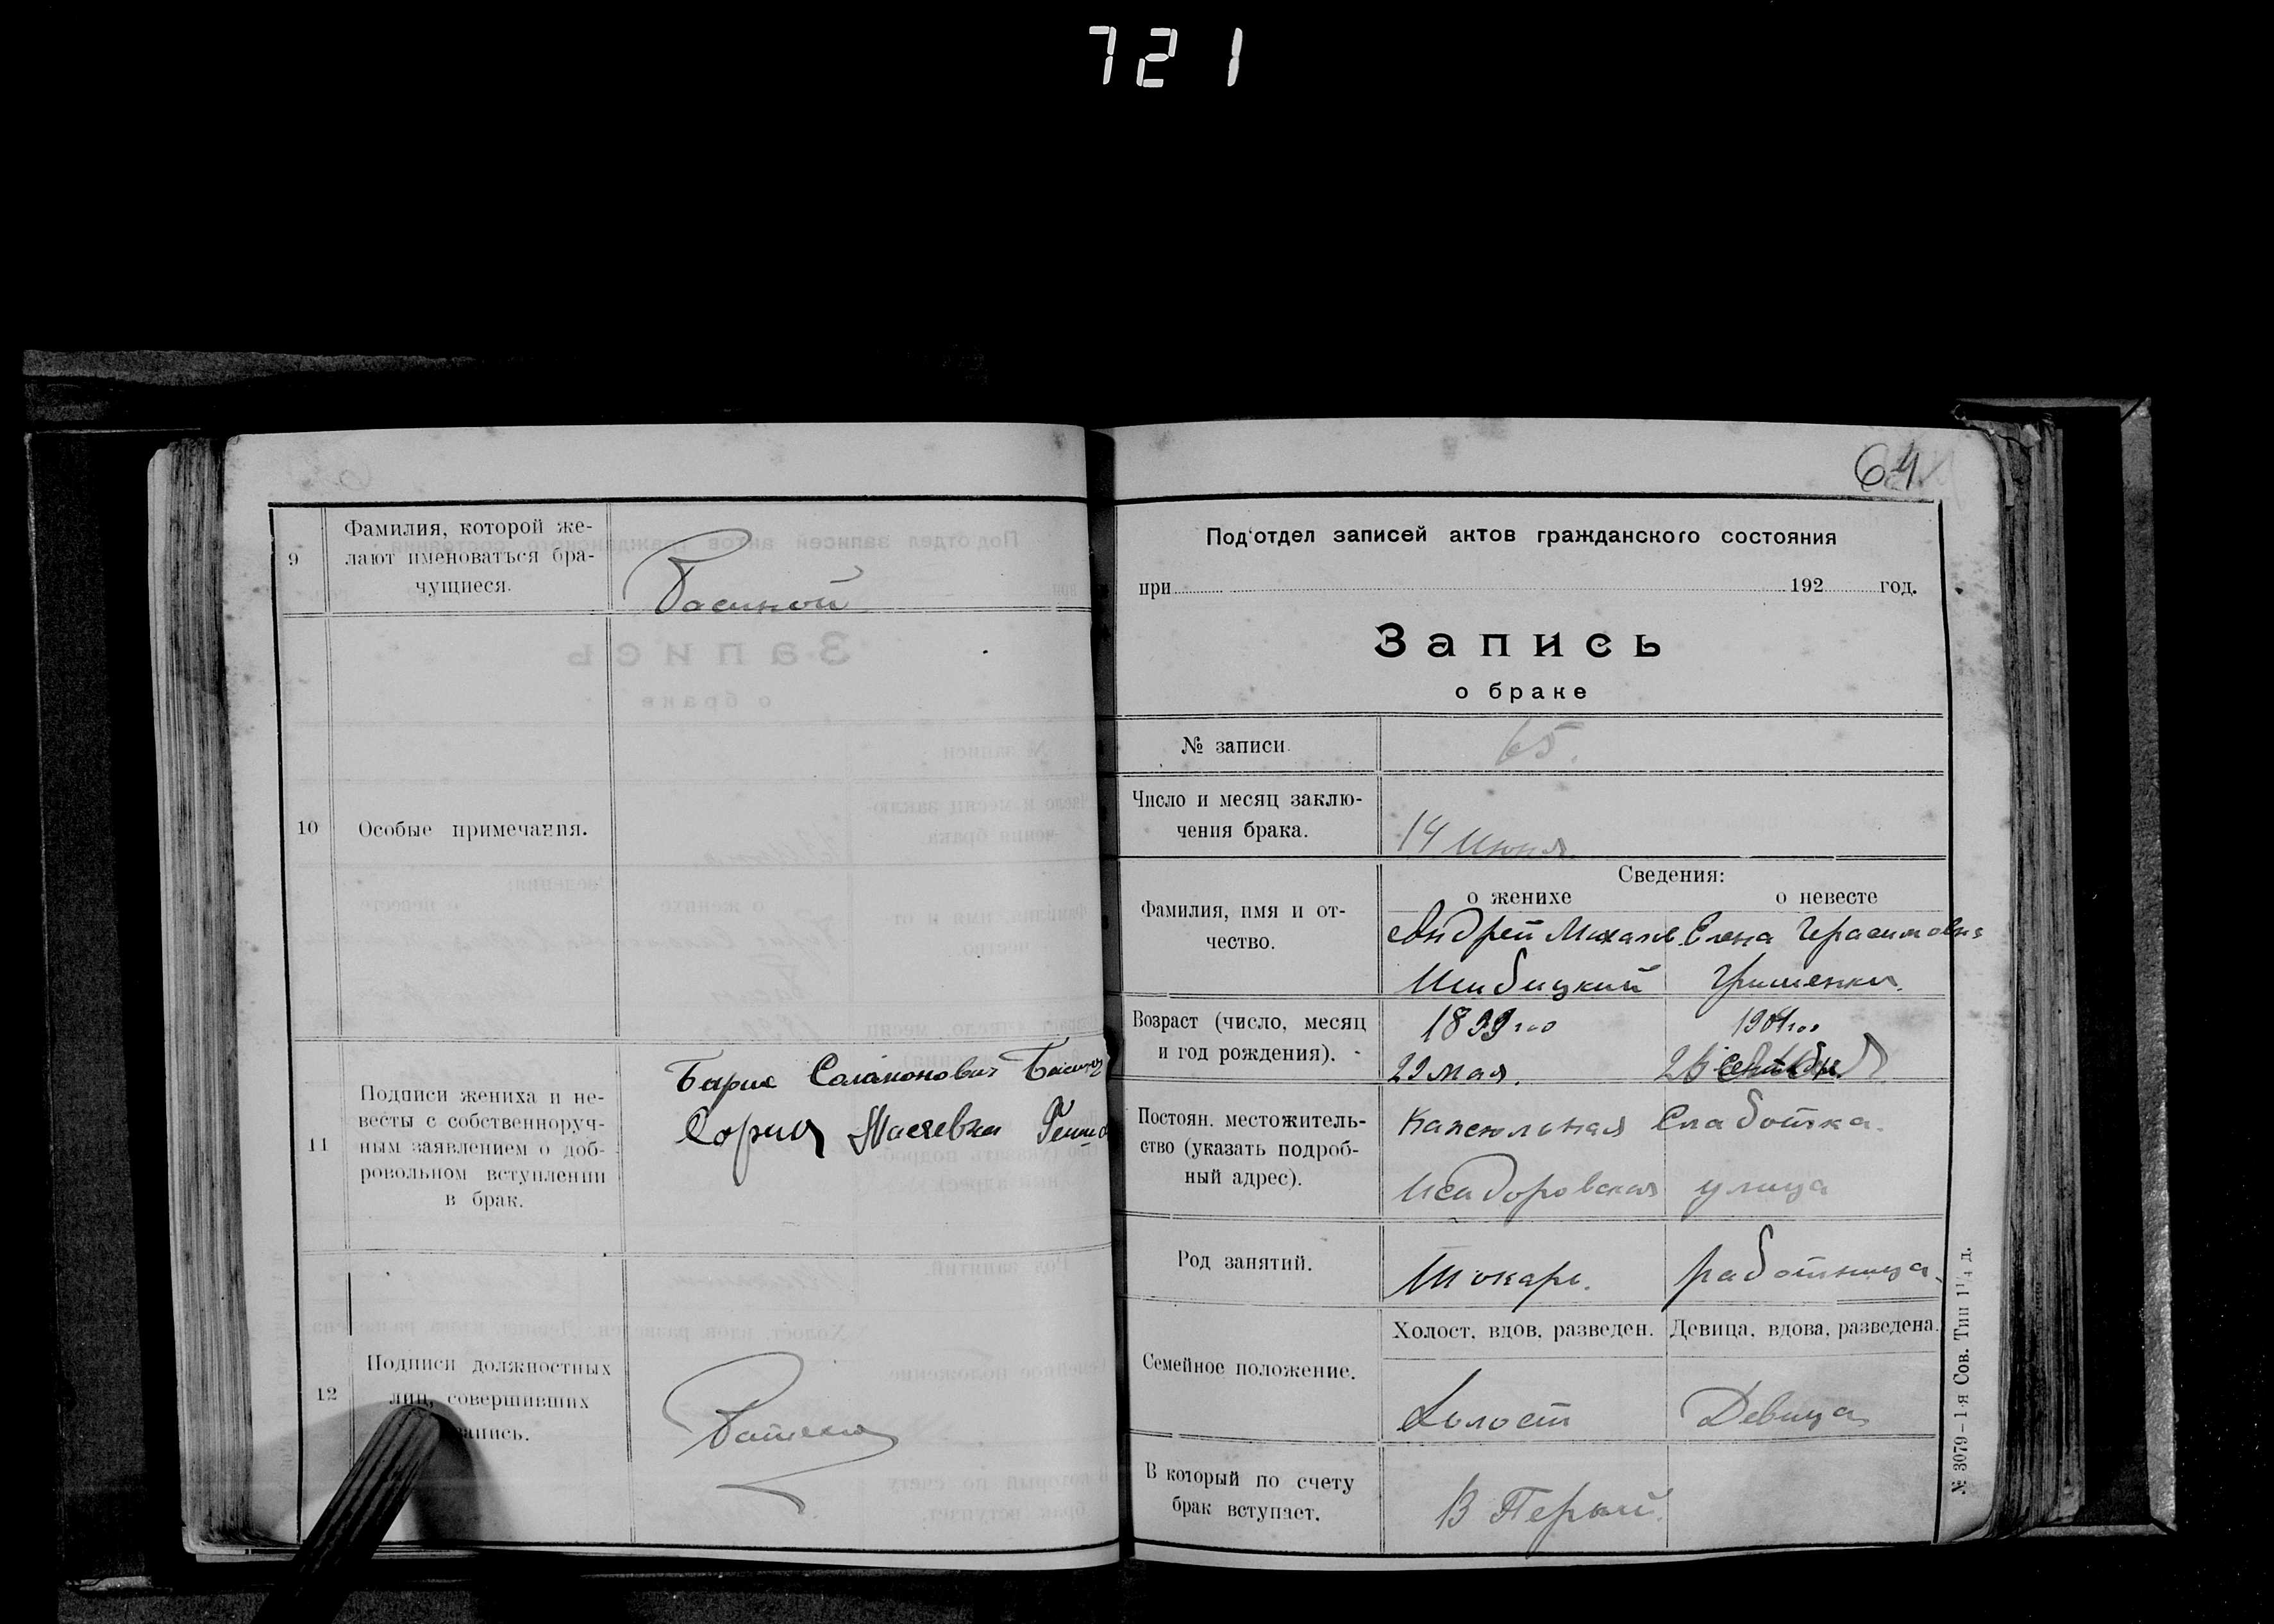 721
9
Фамилия, которой же-
лают именоваться бра-
чущиеся.
10
Особые примечания.
11
Подписи жениха и не-
весты с собственноруч-
ным заявлением о доб-
ровольном вступлении
в брак.
Сарра
12
Подписи должностных
лиц, совершивших
запись.
64
Под'отдел записей актов гражданского состояния
при 192 год.
Запись
о браке
№ записи. 65.
Число и месяц заклю-
чения брака.
14 Июня.
Сведения:
о женихе о невесте
Фамилия, имя и от-
чество.
Андрей Михаил. Елена Герасимовна
Шибицкий Гришенки.
Возраст (число, месяц
и год рождения).
1899 го 1901 го
22 мая. 26 Сентября
Постоян. местожитель-
ство (указать подроб-
ный адрес).
Капсюльная Слаботка.
Исидоровская улица
Род занятий.
Токарь. работница.
Семейное положение.
Холост, вдов, разведен. Девица, вдова, разведена.
Холост Девица
В который по счету
брак вступает.
В Первый.
№ 3079–1-я Сов. Тип 1¹/₄ д.